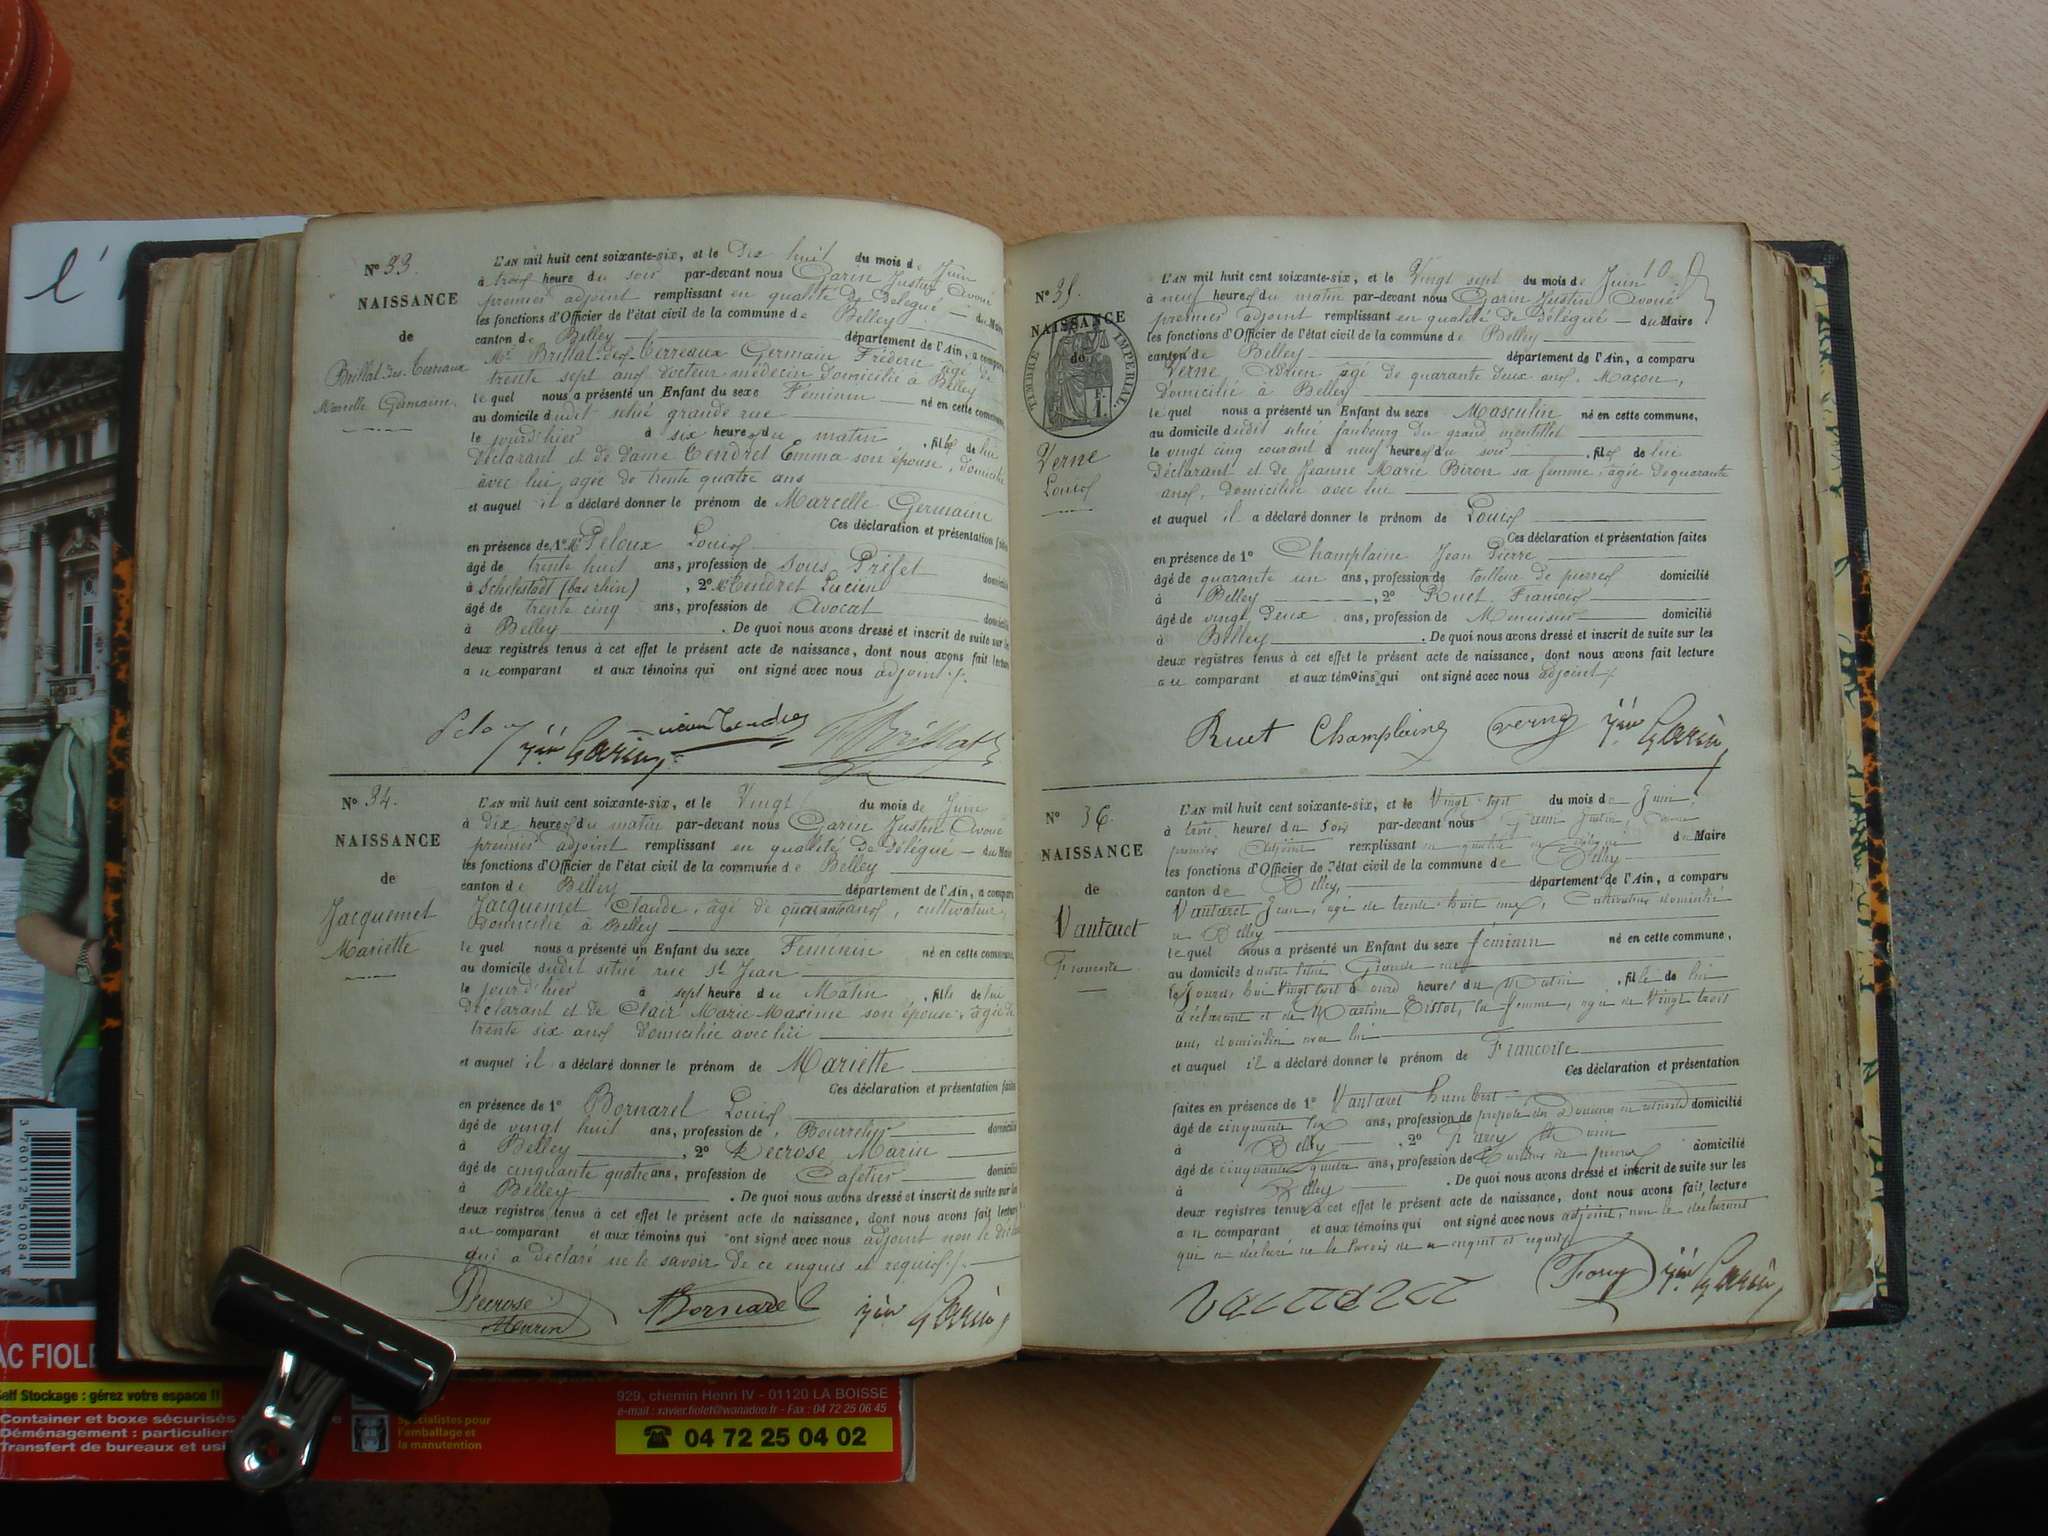 N° 33.
NAISSANCE
de
Brillat-des-Terreaux
Marcelle Germaine.
L'AN mil huit cent soixante-six, et le Dix huit du mois de Juin
à trois heure du soir par-devant nous Garin Justin Avoué
premier adjoint remplissant en qualité de Délégué du Maire
les fonctions d'Officier de l'état civil de la commune de Belley
canton de Belley département de l'Ain, a comparu
Mr Brillat-des-Terreaux Germain Fréderic âgé de
trente sept ans docteur médecin domicilié à Belley
le quel nous a présenté un Enfant du sexe Féminin né en cette commune,
au domicile dudit situé grande rue
le jourd'hier à six heures du matin, fille de lui
Déclarant et de dame Tendret Emma son épouse, domiciliée
avec lui, agée de trente quatre ans
et auquel il a déclaré donner le prénom de Marcelle Germaine
Ces déclaration et présentation faites
en présence de 1° Mr Peloux Louis
âgé de trente huit ans, profession de Sous Préfet domicilié
à Schelestadt (bas rhin), 2° Mr Tendret Lucien
âgé de trente cinq ans, profession de Avocat domicilié
à Belley. De quoi nous avons dressé et inscrit de suite sur les
deux registres tenus à cet effet le présent acte de naissance, dont nous avons fait lecture
au comparant et aux témoins qui ont signé avec nous adjoint./.
Garin
Brillat
N° 34.
NAISSANCE
de
Jacquemet
Mariette
L'AN mil huit cent soixante-six, et le Vingt du mois de Juin
à dix heures du matin par-devant nous Garin Justin Avoué
premier adjoint remplissant en qualité de Délégué du Maire
les fonctions d'Officier de l'état civil de la commune de Belley
canton de Belley département de l'Ain, a comparu
Jacquemet Claude, âgé de quarante ans, cultivateur,
Domicilié à Belley
le quel nous a présenté un Enfant du sexe Féminin né en cette commune,
au domicile dudit situé rue St Jean
le jourd'hier à sept heure du Matin, fille de lui
déclarant et de Clair Marie Maxime son épouse, âgée de
trente six ans domiciliée avec lui
et auquel il a déclaré donner le prénom de Mariette
Ces déclaration et présentation faites
en présence de 1° Bornarel Louis
âgé de vingt huit ans, profession de Bourrelier domicilié
à Belley, 2° Decrose Marin
âgé de cinquante quatre ans, profession de Cafetier domicilié
à Belley. De quoi nous avons dressé et inscrit de suite sur les
deux registres tenus à cet effet le présent acte de naissance, dont nous avons fait lecture
au comparant et aux témoins qui ont signé avec nous adjoint non le
qui a déclaré ne le savoir de ce enquis et requis./.
Decrose
Bornarel
Garin
10
N° 35.
NAISSANCE
de
TIMBRE IMPÉRIAL
1 F.
Verne
Louis
L'AN mil huit cent soixante-six, et le Vingt sept du mois de Juin
à neuf heures du matin par-devant nous Garin Justin Avoué
premier adjoint remplissant en qualité de Délégué du Maire
les fonctions d'Officier de l'état civil de la commune de Belley
canton de Belley département de l'Ain, a comparu
Verne Adrien âgé de quarante deux ans, Maçon,
Domicilié à Belley
le quel nous a présenté un Enfant du sexe Masculin né en cette commune,
au domicile dudit situé faubourg du grand
le vingt cinq courant à neuf heures du soir, fils de lui
Déclarant et de Jeanne Marie Biron sa femme, agée de quarante
ans, domiciliée avec lui
et auquel il a déclaré donner le prénom de Louis
Ces déclaration et présentation faites
en présence de 1° Champlaine Jean Pierre
âgé de quarante un ans, profession de tailleur de pierres domicilié
à Belley, 2° Ruet François
âgé de vingt Deux ans, profession de Menuisier domicilié
à Belley. De quoi nous avons dressé et inscrit de suite sur les
deux registres tenus à cet effet le présent acte de naissance, dont nous avons fait lecture
au comparant et aux témoins qui ont signé avec nous adjoint./.
Ruet Champlaine Verne Garin
N° 36.
NAISSANCE
de
Vantaret
Francoise
L'AN mil huit cent soixante-six, et le Vingt sept du mois de Juin
à trois heures du soir par-devant nous Garin Justin, Avoué
premier adjoint remplissant en qualité de Délégué du Maire
les fonctions d'Officier de l'état civil de la commune de Belley
canton de Belley, département de l'Ain, a comparu
Vantaret Jean, agé de trente huit ans, Cultivateur domicilié
a Belley
le quel nous a présenté un Enfant du sexe féminin né en cette commune,
au domicile dudit situé Grande rue
heures du Matin, fille de lui
déclarant et de Martine Tissot, sa femme, agée de Vingt trois
ans, domiciliée avec lui
et auquel il a déclaré donner le prénom de Francoise
Ces déclaration et présentation
faites en présence de 1° Vantaret humbert
âgé de cinquante six ans, profession de préposé des Douanes en retraite domicilié
à Belley, 2°
âgé de cinquante quatre ans, profession de Tailleur de pierres domicilié
à Belley. De quoi nous avons dressé et inscrit de suite sur les
deux registres tenus à cet effet le présent acte de naissance, dont nous avons fait lecture
au comparant et aux témoins qui ont signé avec nous adjoint, non le déclarant
qui a déclaré ne le savoir de ce enquis et requis
Garin
l'
AC FIOLE
Self Stockage : gérez votre espace !!
Container et boxe sécurisés
Déménagement : particulier
Transfert de bureaux et usi
Spécialistes pour
l'emballage et
la manutention
929, chemin Henri IV - 01120 LA BOISSE
e-mail : xavier.fiolet@wanadoo.fr - Fax : 04 72 25 06 45
☎ 04 72 25 04 02